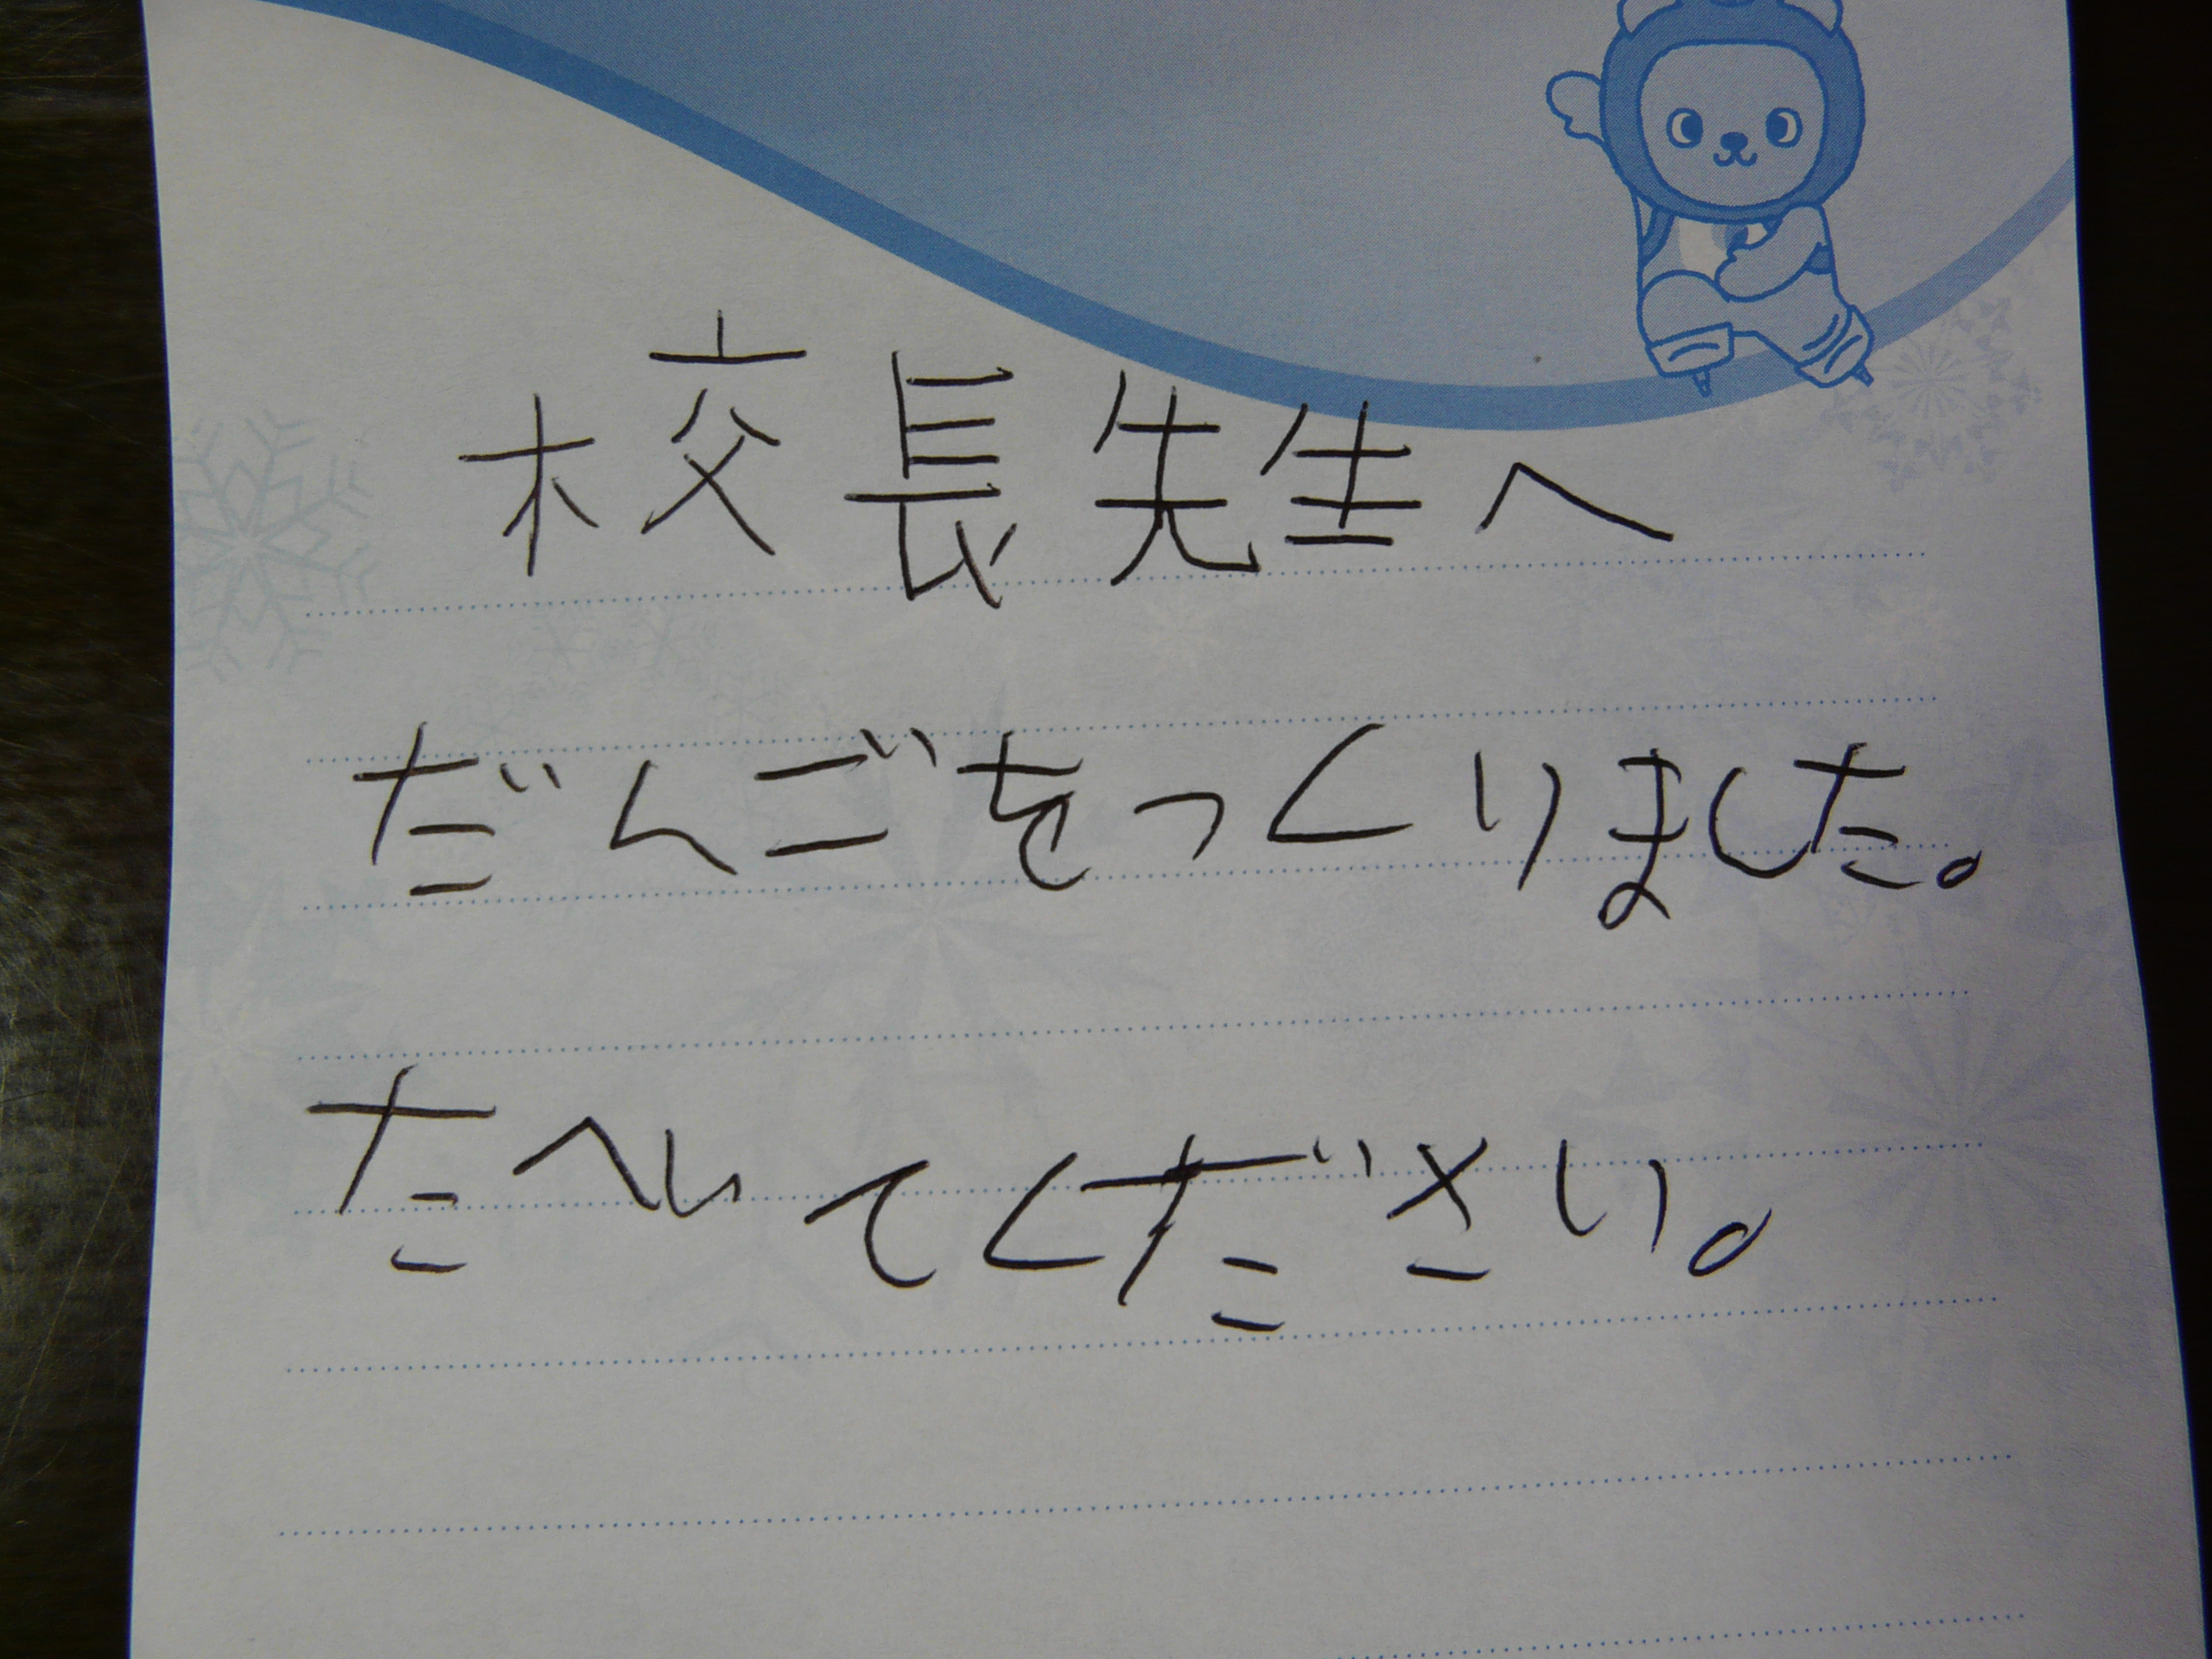 校長先生へ
だんごをつくりました。
たへいてください。